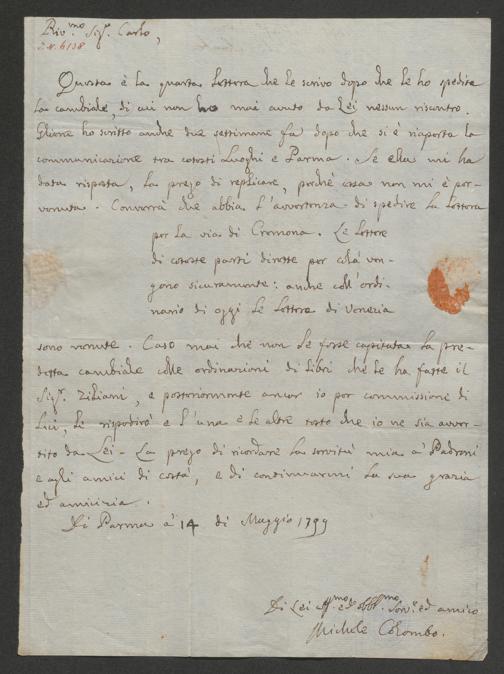 Riv.mo Sig.r Carlo,
2.N.6138
Questa è la quarta Lettera che le scrivo dopo che le ho spedita
la cambiale, di cui non ho mai avuto da Lei nessun riscontro.
Gliene ho scritto anche due settimane fa dopo che si è riaperta la
communicazione tra cotesti Luoghi e Parma. Se ella mi ha
data risposta, la prego di replicare, perchè essa non mi è per-
venuta. Converrà che abbia l'avvertenza di spedire la Lettera
per la via di Cremona. Le Lettere
di coteste parti dirette per colà ven-
gono sicuramente: anche coll'ordi-
nario di oggi le Lettere di Venezia
sono venute. Caso mai che non le fosse capitata la pre-
detta cambiale colle ordinazioni di Libri che le ha fatte il
Sig.r Ziliani, e posteriormente ancor io per commissione di
Lui, le rispedirò e l'una e le altre tosto che io ne sia avver-
tito da Lei. La prego di ricordare la servitù mia a' Padroni
e agli amici di costà, e di continuarmi la sua grazia
ed amicizia.
Di Parma a' 14 di Maggio 1799
Di Lei Aff.mo ed Obb.mo Serv.e ed amico
Michele Colombo.